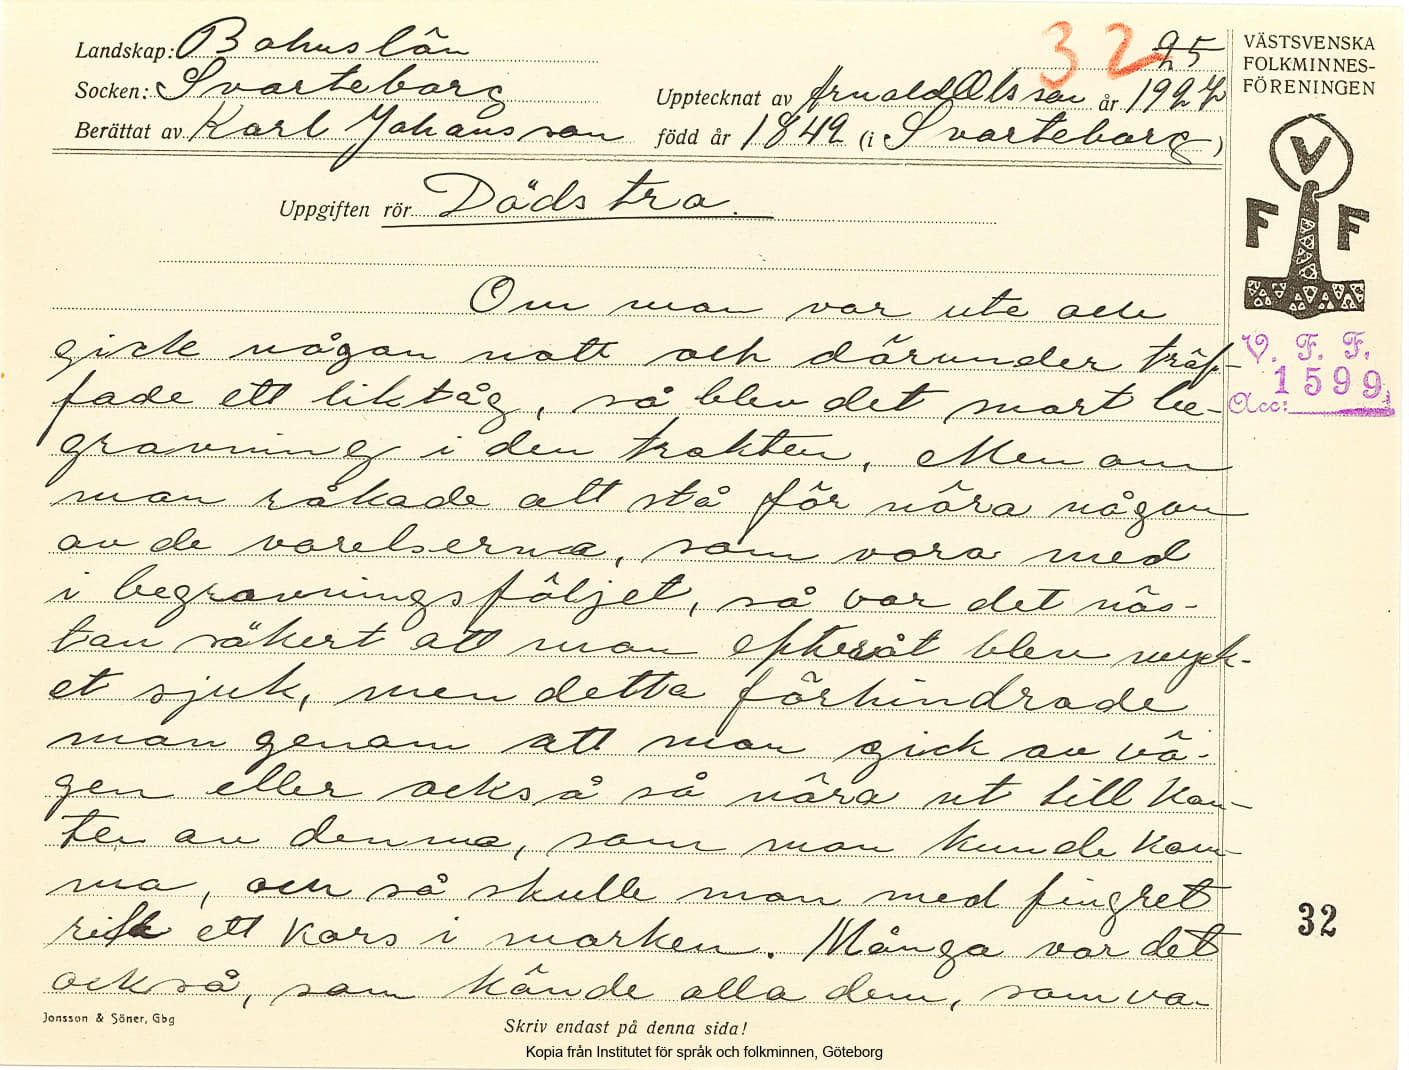 Landskap: Bohuslän
32 25
VÄSTSVENSKA
FOLKMINNES-
FÖRENINGEN
Socken: Svarteborg
Upptecknat av Arnold Olsson år 1927
Berättat av Karl Johansson född år 1842 (i Svarteborg)
V
F F
Uppgiften rör Dödstra.
Om man var ute och
gick någon natt och därunder träf-
fade ett liktåg, så blev det snart be-
gravning i den trakten. Men om
man råkade att stå för nära någon
av de varelserna, som vora med
i begravningsföljet, så var det näs-
tan säkert att man efteråt blev myck-
et sjuk, men detta förhindrade
man genom att man gick av vä-
gen eller också så nära ut till kan-
ten av denna, som man kunde kom-
ma, och så skulle man med fingret
rista ett kors i marken. Många var det
också, som kände alla dem, som va-
V. F. F.
Acc: 1599
32
Jonsson & Söner, Gbg
Skriv endast på denna sida!
Kopia från Institutet för språk och folkminnen, Göteborg